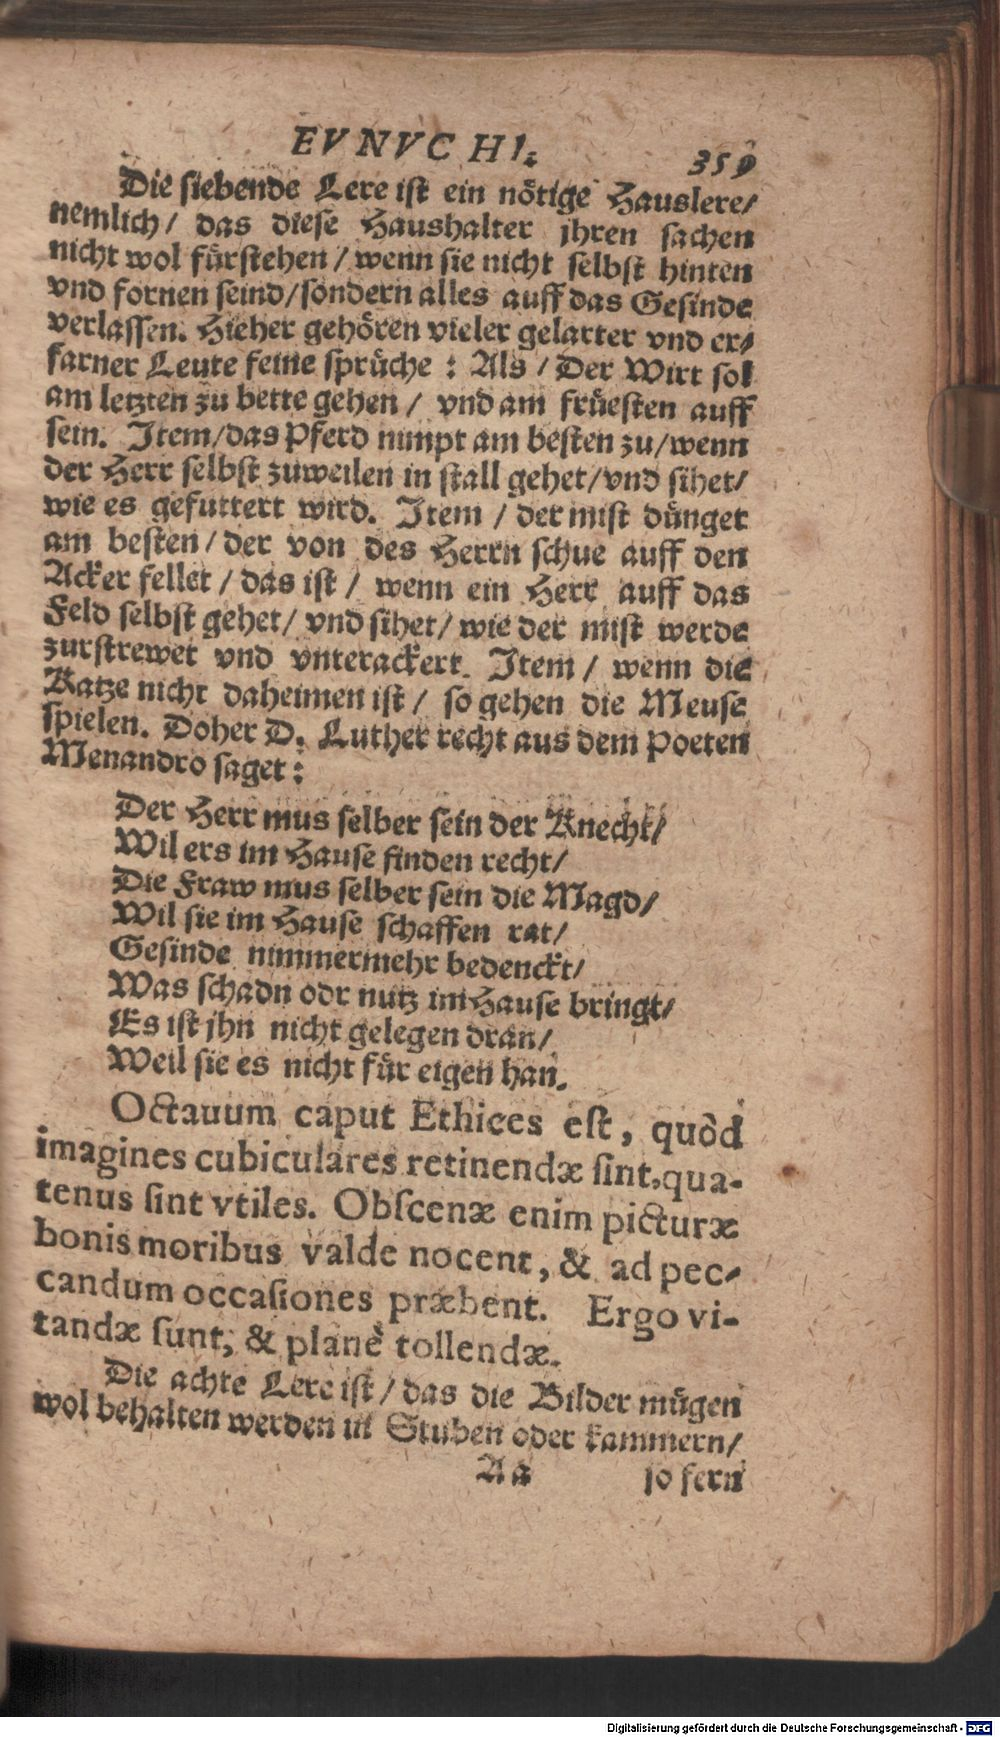 EVNVCHI. 359
Die siebende Lere ist ein nötige Hauslere/
nemlich/ das diese Haushalter jhren sachen
nicht wol fürstehen/ wenn sie nicht selbst hinten
vnd fornen seind/sondern alles auff das Gesinde
verlassen. Hieher gehören vieler gelarter vnd er/
farner Leute feine sprüche: Als/ Der Wirt sol
am letzten zu bette gehen/ vnd am früesten auff
sein. Item/das Pferd nimpt am besten zu/wenn
der Herr selbst zuweilen in stall gehet/vnd sihet/
wie es gefuttert wird. Item/ der mist dünget
am besten/ der von des Herrn schue auff den
Acker fellet/ das ist/ wenn ein Herr auff das
Feld selbst gehet/ vnd sihet/ wie der mist werde
zurstrewet vnd vnterackert. Item/ wenn die
Katze nicht daheimen ist/ so gehen die Meuse
spielen. Doher D. Luther recht aus dem Poeten
Menandro saget:
Der Herr mus selber sein der Knecht/
Wil ers im Hause finden recht/
Die Fraw mus selber sein die Magd/
Wil sie im Hause schaffen rat/
Gesinde nimmermehr bedenckt/
Was schadn odr nutz im Hause bringt/
Es ist jhn nicht gelegen dran/
Weil sie es nicht für eigen han.
Octauum caput Ethices est, quòd
imagines cubiculares retinendæ sint, qua-
tenus sint vtiles. Obscenæ enim picturæ
bonis moribus valde nocent, & ad pec-
candum occasiones præbent. Ergo vi-
tandæ sunt, & planè tollendæ.
Die achte Lere ist/ das die Bilder mügen
wol behalten werden in Stuben oder kammern/
Aa so fern
Digitalisierung gefördert durch die Deutsche Forschungsgemeinschaft - DFG